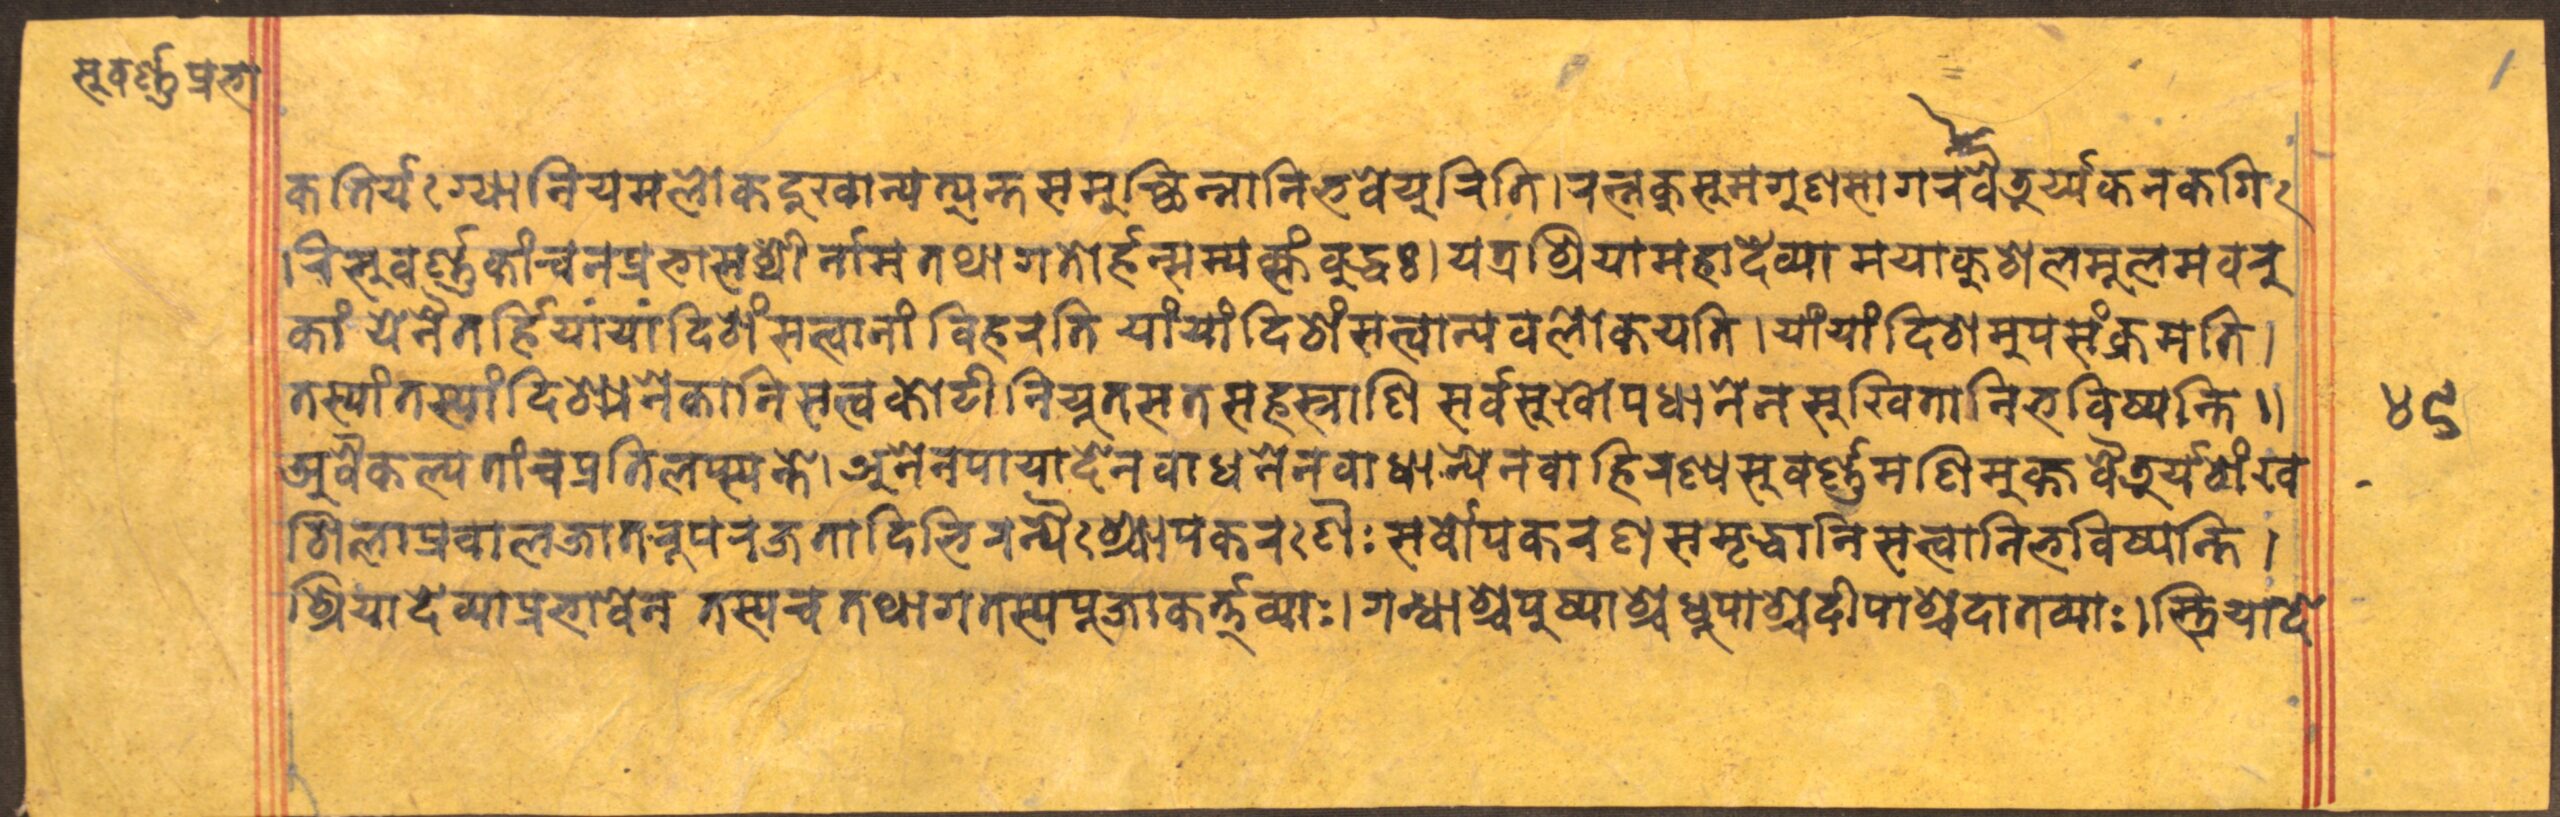 सुवर्ण्णप्रभा
कतिर्यग्योनियमलोकदुखान्यत्यन्तसमुच्छिन्नानिभवेयुरिति।रत्नकुसुमगुणसागरवैडुर्य्यकनकगि
रिसुवर्ण्णकांचनप्रभासश्रीर्नामतथागतोर्हन्सम्यक्संबुद्धः।यत्रश्रियामहादेव्यामयाकुशलमूलमवरु
कां येनैतर्हियांयांदिशंसत्त्वानां विहरति यांयांदिशंसत्त्वान्यवलोकयति।यांयांदिशमुपसंक्रमति।
तस्यांतस्यांदिश्यनेकानिसत्त्वकोटीनियुतसतसहस्राणि सर्वसुखोपधानेनसुखितानिभविष्यन्ति॥
४९
अवैकल्यतांचप्रतिलप्स्यन्ते।अनेनपायादेनवाधनेनवाधान्येनवाहिरण्यसुवर्ण्णमणिमुक्तवैडुर्यशंख
शिलाप्रवालजातरूपरजतादिभिरन्यैश्चोपकरणैः सर्वोपकरणसमृद्धानिसत्त्वानिभविष्यन्ति।
श्रियादेव्याप्रभावेन तस्यचतथागतस्यपूजाकर्त्तव्याः।गन्धाश्चपुष्पाश्चधूपाश्चदीपाश्चदातव्याः।स्त्रियादे